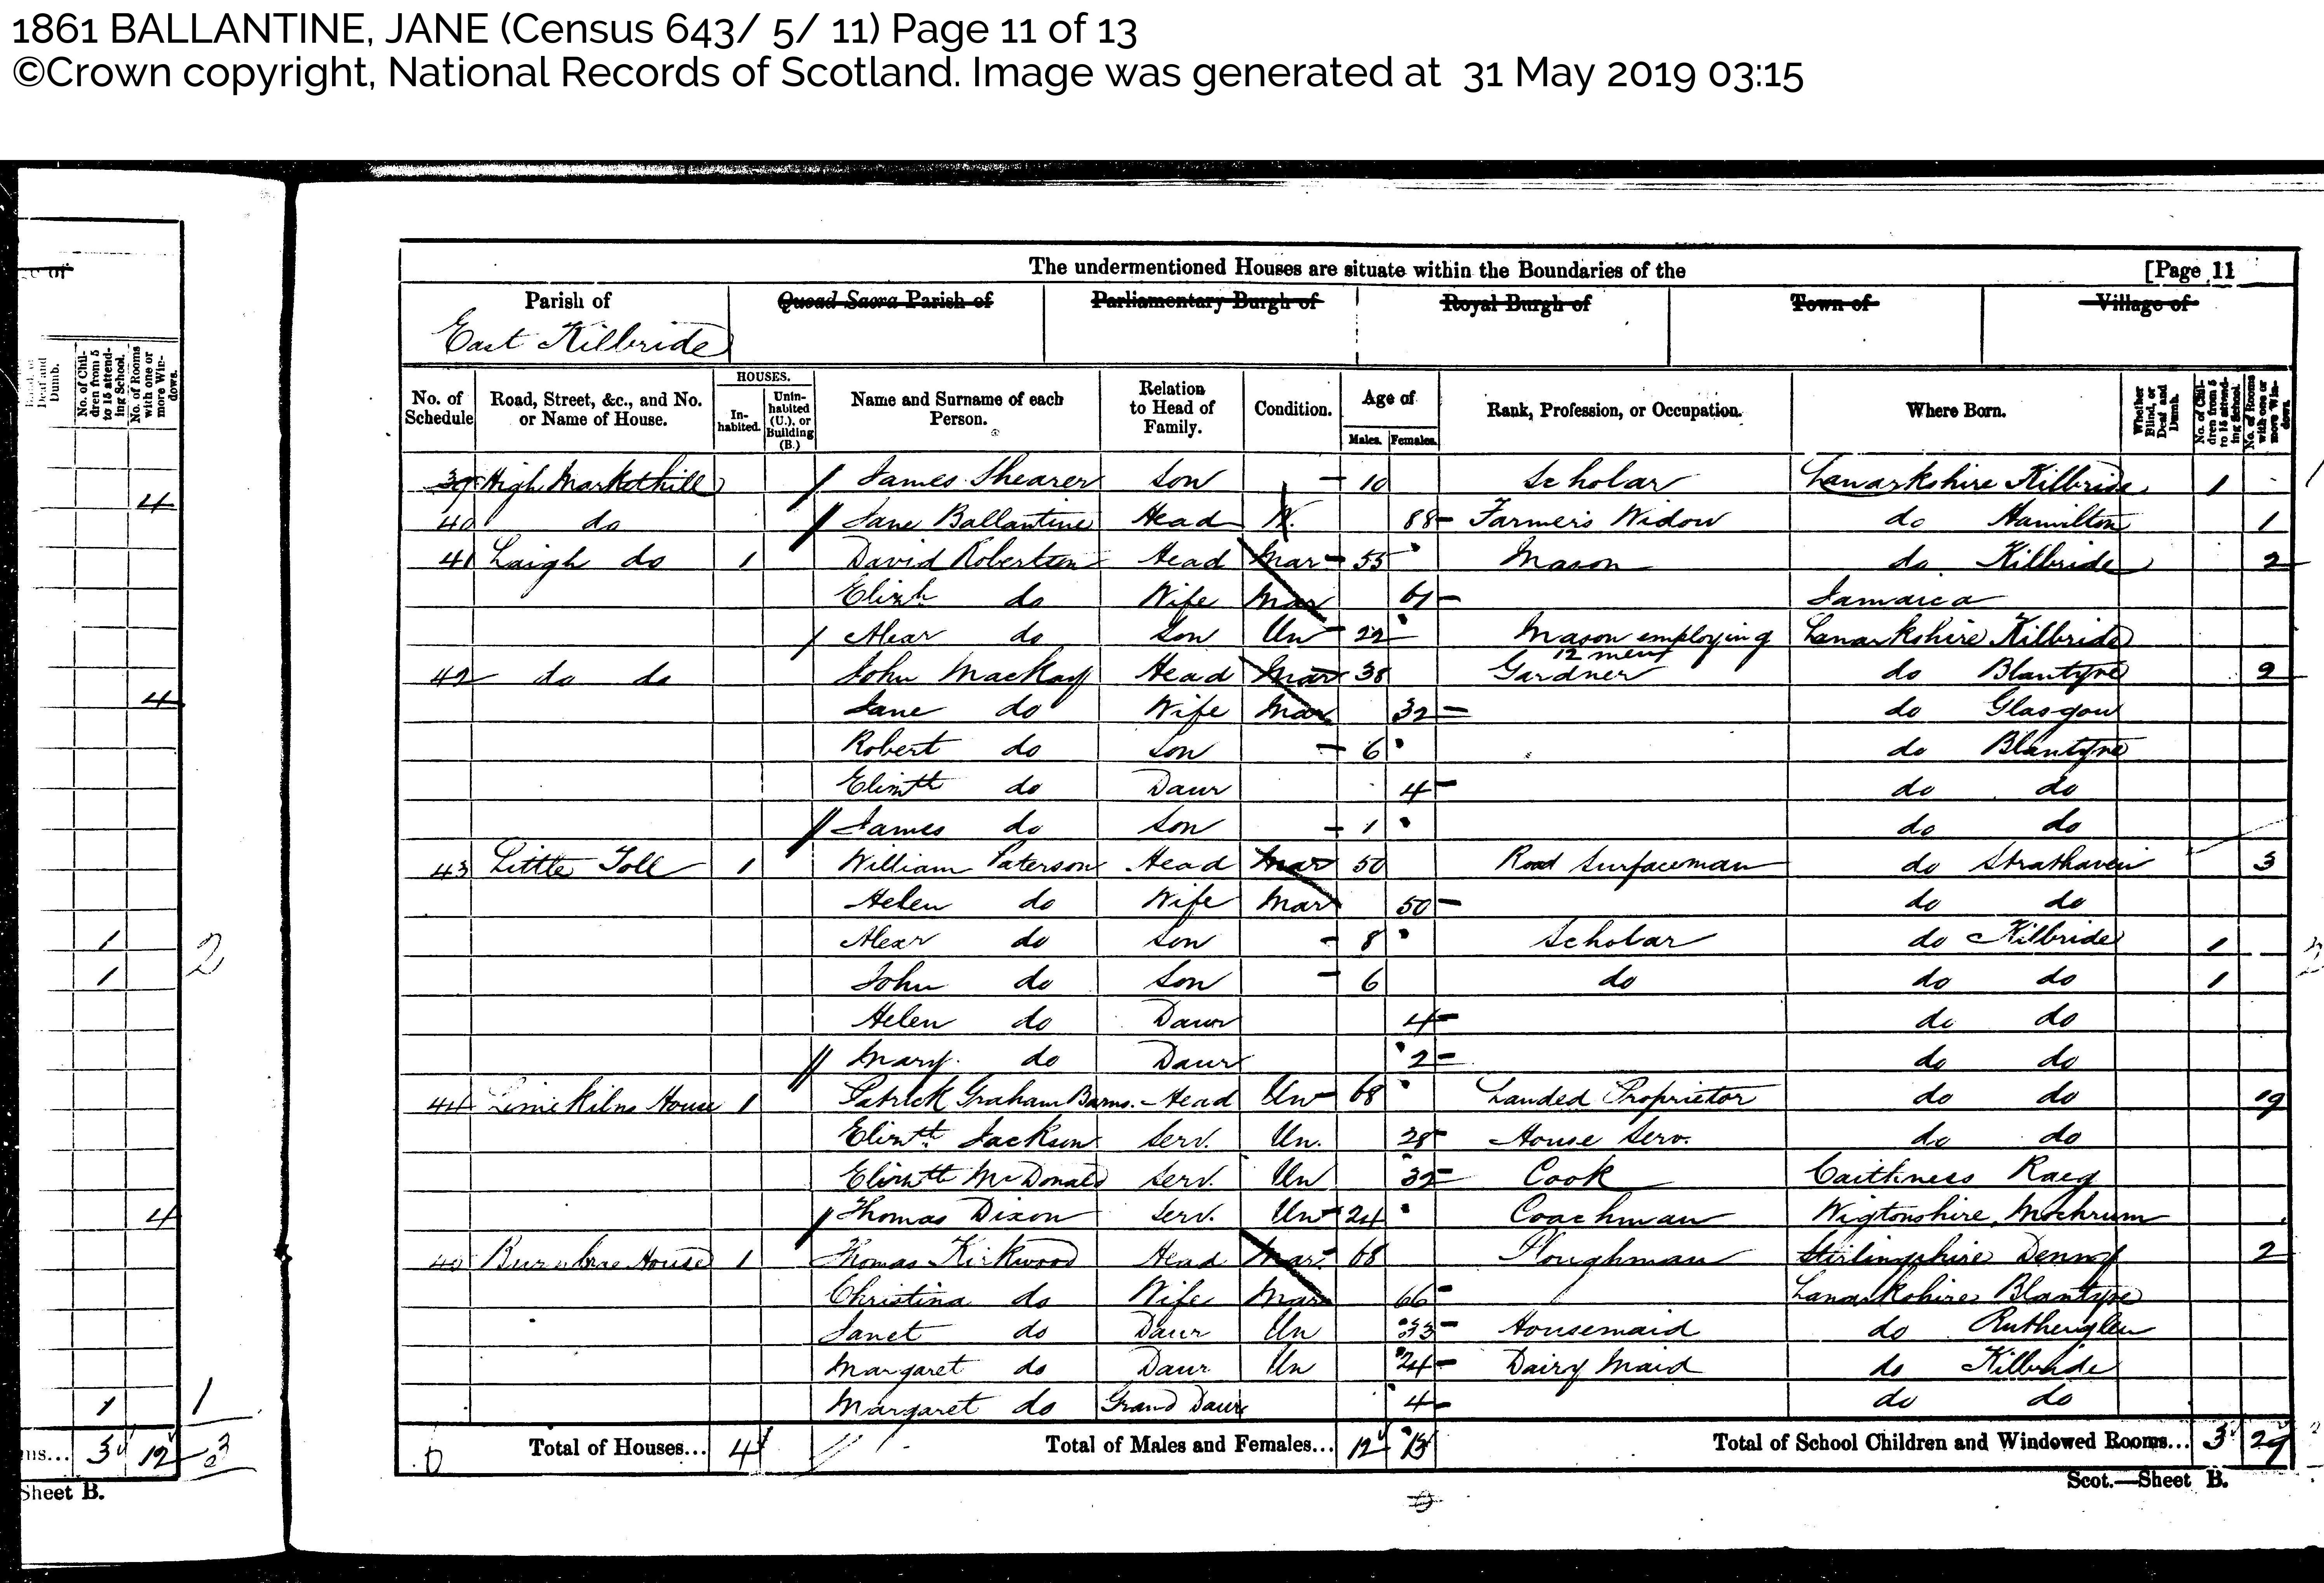 1861 BALLANTINE, JANE (Census 643/ 5/ 11) Page 11 of 13
©Crown copyright, National Records of Scotland. Image was generated at 31 May 2019 03:15
The undermentioned Houses are situate within the Boundaries of the [Page 11
Parish of Quoad Sacra Parish of Parliamentary Burgh of Royal Burgh of Town of Village of
East Kilbride
No. of Schedule Road, Street, &c., and No. or Name of House. HOUSES. In-habited. Unin-habited (U.), or Building (B.) Name and Surname of each Person. Relation to Head of Family. Condition. Age of Males. Females. Rank, Profession, or Occupation. Where Born. Whether Blind, or Deaf and Dumb. No. of Chil-dren from 5 to 15 attend-ing School. No. of Rooms with one or more Win-dows.
39 High Markethill James Shearer Son 10 Scholar Lanarkshire Kilbride 1
40 do Jane Ballantine Head W. 88 Farmers Widow do Hamilton 1
41 Laigh do 1 David Robertson Head Mar 55 Mason do Kilbride 2
do Wife Mar 61 Jamaica
Alexr do Son Un 22 Mason employing 12 men Lanarkshire Kilbride
42 do do John Mackay Head Mar 38 Gardner do Blantyre 2
Jane do Wife Mar 32 do Glasgow
Robert do Son 6 do Blantyre
Elizth do Daur 4 do do
James do Son 1 do do
43 Little Toll 1 William Paterson Head Mar 50 Road Surfaceman do Strathaven 3
Helen do Wife Mar 50 do do
Alexr do Son 8 Scholar do Kilbride 1
John do Son 6 do do do 1
Helen do Daur 4 do do
Mary do Daur 2 do do
44 Limekilns House 1 Patrick Graham Barns. Head Un 68 Landed Proprietor do do 19
Elizth Jackson Serv. Un. 28 House Serv. do do
Elizth McDonald Serv. Un 32 Cook Caithness Raeg
Thomas Dixon Serv. Un 24 Coachman Wigtonshire, Mochrum
45 Burnbrae House 1 Thomas Kirkwood Head Mar. 68 Ploughman Stirlingshire Denny 2
Christina do Wife Mar 66 Lanarkshire Blantyre
Janet do Daur Un 33 Housemaid do Rutherglen
Margaret do Daur Un 24 Dairy Maid do Kilbride
Margaret do Grand Daur 4 do do
0 Total of Houses... 4 Total of Males and Females... 12 13 Total of School Children and Windowed Rooms... 3 29
Scot.—Sheet B.